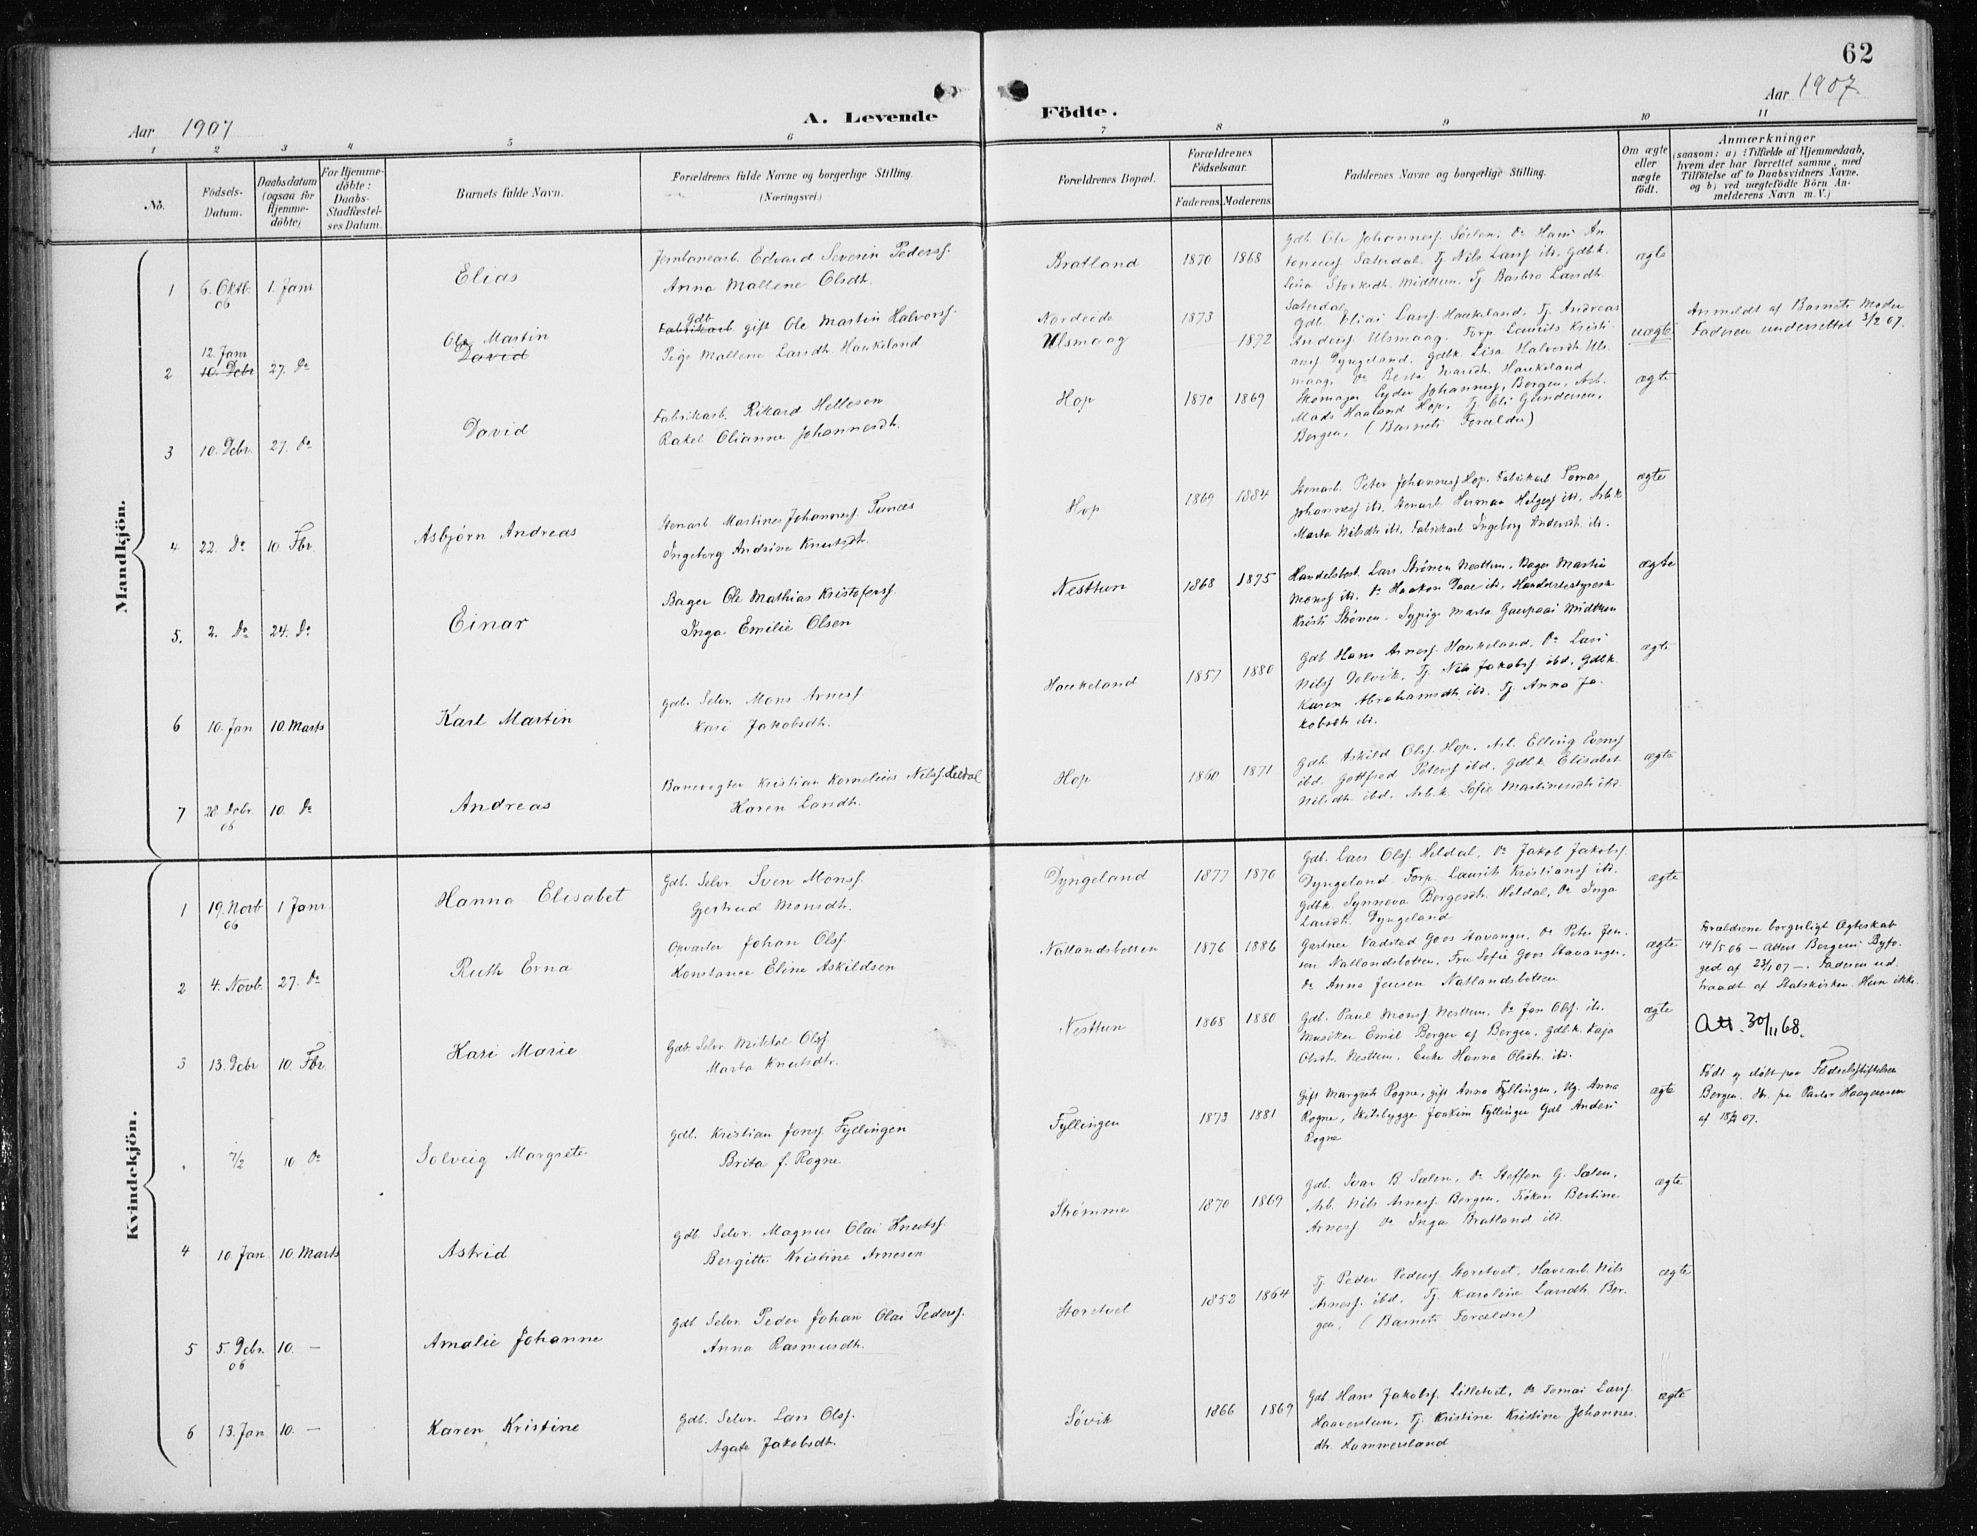 62
Aar 1907
A. Levende Födte.
Aar 1907.
1 2 3 4 5 6 7 8 9 10 11
No.
Födsels-Datum.
Daabsdatum (ogsaa for Hjemmedöbte)
For Hjemmedöbte: Daabs-Stadfæstelses Datum.
Barnets fulde Navn.
Forældrenes fulde Navne og borgerlige Stilling.
(Næringsvei)
Forældrenes Bopæl.
Forældrenes Födselsaar.
Faderens. Moderens.
Faddernes Navne og borgerlige Stilling.
Om ægte eller uægte födt.
Anmærkninger
(saasom: a) i Tilfælde af Hjemmedaab, hvem der har forrettet samme, med Tilföielse af to Daabsvidners Navne, og b) ved uægtefödte Börn Anmelderens Navn m. V.)
Mandkjön.
1 6. Oktb. 06 1. Janr Elias
Jernbanearb. Edvard Severin Pederss.
Anna Mallene Olsdt.
Bratland 1870 1868
Gdb. Ole Johanness. Sælen, Do Hans An
tonius Sæterdal, Tj. Nils Larss ibd, Gdbk.
Sina Storksdt. Midttun, Tj. Barbro Larsdt.
Sæterdal
ægte
2 12. Janr 10. Debr 27. Do Ole Martin David
Gdb Fabrikarb. gift Ole Martin Halvorss.
Pige Mallene Larsdt. Haukeland
Nordeide 1873
Ulsmaag 1872
Gdb. Elias Larss. Haukeland, Tj. Andreas
Anderss Ulsmaag, Forp. Laurits Kristi
anss Dyngeland, Gdbk. Lisa Halvorsdt. Uls
maag, Do Berta Ivarsdt. Haukeland
uægte
Anmeldt af Barnets Moder
Faderen underrettet 3/2 07.
3 10. Debr. 27. Do David
Fabrikarb. Rikard Hellesen
Rakel Olianne Johannesdt.
Hop 1870 1869
Skomager Lyder Johanness, Bergen, Arb.
Mads Haaland Hop, Tj. Eli Gundersen,
Bergen, (Barnets Forældre)
ægte
4. 22. Do 10. Fbr. Asbjørn Andreas
Stenarb. Martines Johanness Tunæs
Ingeborg Andrine Knutsdt.
Hop 1869 1884
Stenarb. Peter Johanness Hop, Fabrikarb Tomas
Johanness ibd, Stenarb. Herman Helgess ibd, Arbk
Marta Nilsdt ibd, Fabrikarb Ingeborg Andersdt. ibd.
ægte
5. 2. Do 24. Do Einar
Bager Ole Mathias Kristoferss.
Inga Emilie Olsen
Nesttun 1868 1875
Handelsbest. Lars Strønen Nesttun, Bager Martin
Monss ibd, Do Haakon Daae ibd, Handelsbestyrer
Kristi Strønen, Sypige Marta Midttun
ægte
6 10. Jan 10. Marts Karl Martin
Gdb. Selvr. Mons Arness
Kari Jakobsdt.
Haukeland 1857 1880
Gdb Hans Arness. Haukeland, Do Lars
Nilss Dolvik, Tj. Nils Jakobss ibd, Gdbk.
Karen Abrahamsdt. ibd. Tj. Anna Ja-
kobsdt ibd.
ægte
7 28 Debr. 06 10. Do Andreas
Banevogter Kristian Kornelius Nilss Heldal
Karen Larsdt.
Hop 1860 1871
Gdb. Askild Olss. Hop, Arb. Elling Evenss
ibd. Gottfred Peterss ibd, Gdbk. Elisabet
Nilsdt. ibd. Arbk. Sofie Martinusdt ibd.
ægte
Kvindekjön.
1 19. Novb 06 1 Janr Hanna Elisabet
Gdb. Selvr. Sven Monss.
Gjertrud Monsdt.
Dyngeland 1877 1870
Gdb. Lars Olss. Heldal, Do Jakob Jakobss.
Dyngeland Forp. Laurits Kristianss ibd.
Gdbk. Synneva Børgesdt. Heldal, Do Inga
Larsdt. Dyngeland
ægte
2 4. Novb. 27. Do Ruth Erna
Opvarter Johan Olss.
Konstance Eline Askildsen
Natlandsbotten 1876 1886
Gartner Vadsted Goos Stavanger, Do Peter Jen
sen Natlandsbotten, Fru Sofie Goos Stavanger,
Do Anna Jensen Natlandsbotten
ægte
Forældrene borgerligt Ægteskab
14/5 06 – Attest Bergens Byfo-
ged af 23/1 07 –. Faderen ud-
traadt af Statskirken. Hun ikke.
3 13. Debr 10. Fbr. Kari Marie
Gdb. Selvr. Mikkel Olss.
Marta Knutsdt.
Nesttun 1868 1880
Gdb. Paul Monss. Nesttun, Do Jan Olss. ibd.
Musiker Emil Berger af Bergen, Gdbk. Kaja
Olsdt. Nesttun, Enke Hanna Olsdt. ibd.
ægte
Att. 30/11 68.
. 7/2 10 Do Solveig Margrete
Gdb. Kristian Jonss. Fyllingen
Brita f. Rogne
Fyllingen 1873 1881
Gift Margrete Rogne, gift Anna Fyllingen, Ug. Anna
Rogne, Joakim Fyllingen Gdb Anders
Rogne
ægte
Født og døbt paa Fødselsstiftelsen
Bergen. af 07.
4 10. Jan 10 Marts Astrid
Gdb. Selvr. Magnus Olai Knutss.
Bergitte Kristine Arnesen
Strømme 1870 1869
Gdb. Ivar B. Sælen, Do Steffen G. Sælen,
Arb. Nils Arness. Bergen, Frøken Bertine
Arness Do Inga Bratland ibd.
ægte
5 5. Debr. 06 10. – Amalie Johanne
Gdb. Selvr. Peder Johan Olai Pederss.
Anna Rasmusdt.
Storetvet 1852 1864
Tj. Peder Pederss. Storetvet, Havearb. Nils
Arness. ibd. Tj. Karoline Larsdt. Ber-
gen, (Barnets Forældre)
ægte
6 13. Jan 10. – Karen Kristine
Gdb. Selvr. Lars Olss.
Agate Jakobsdt.
Søvik 1866 1869
Gdb. Hans Jakobss. Lilletvet, Do Tomas Larss.
Haaverstun, Tj. Kristine Kristine Johannes
dt. Hammersland
ægte